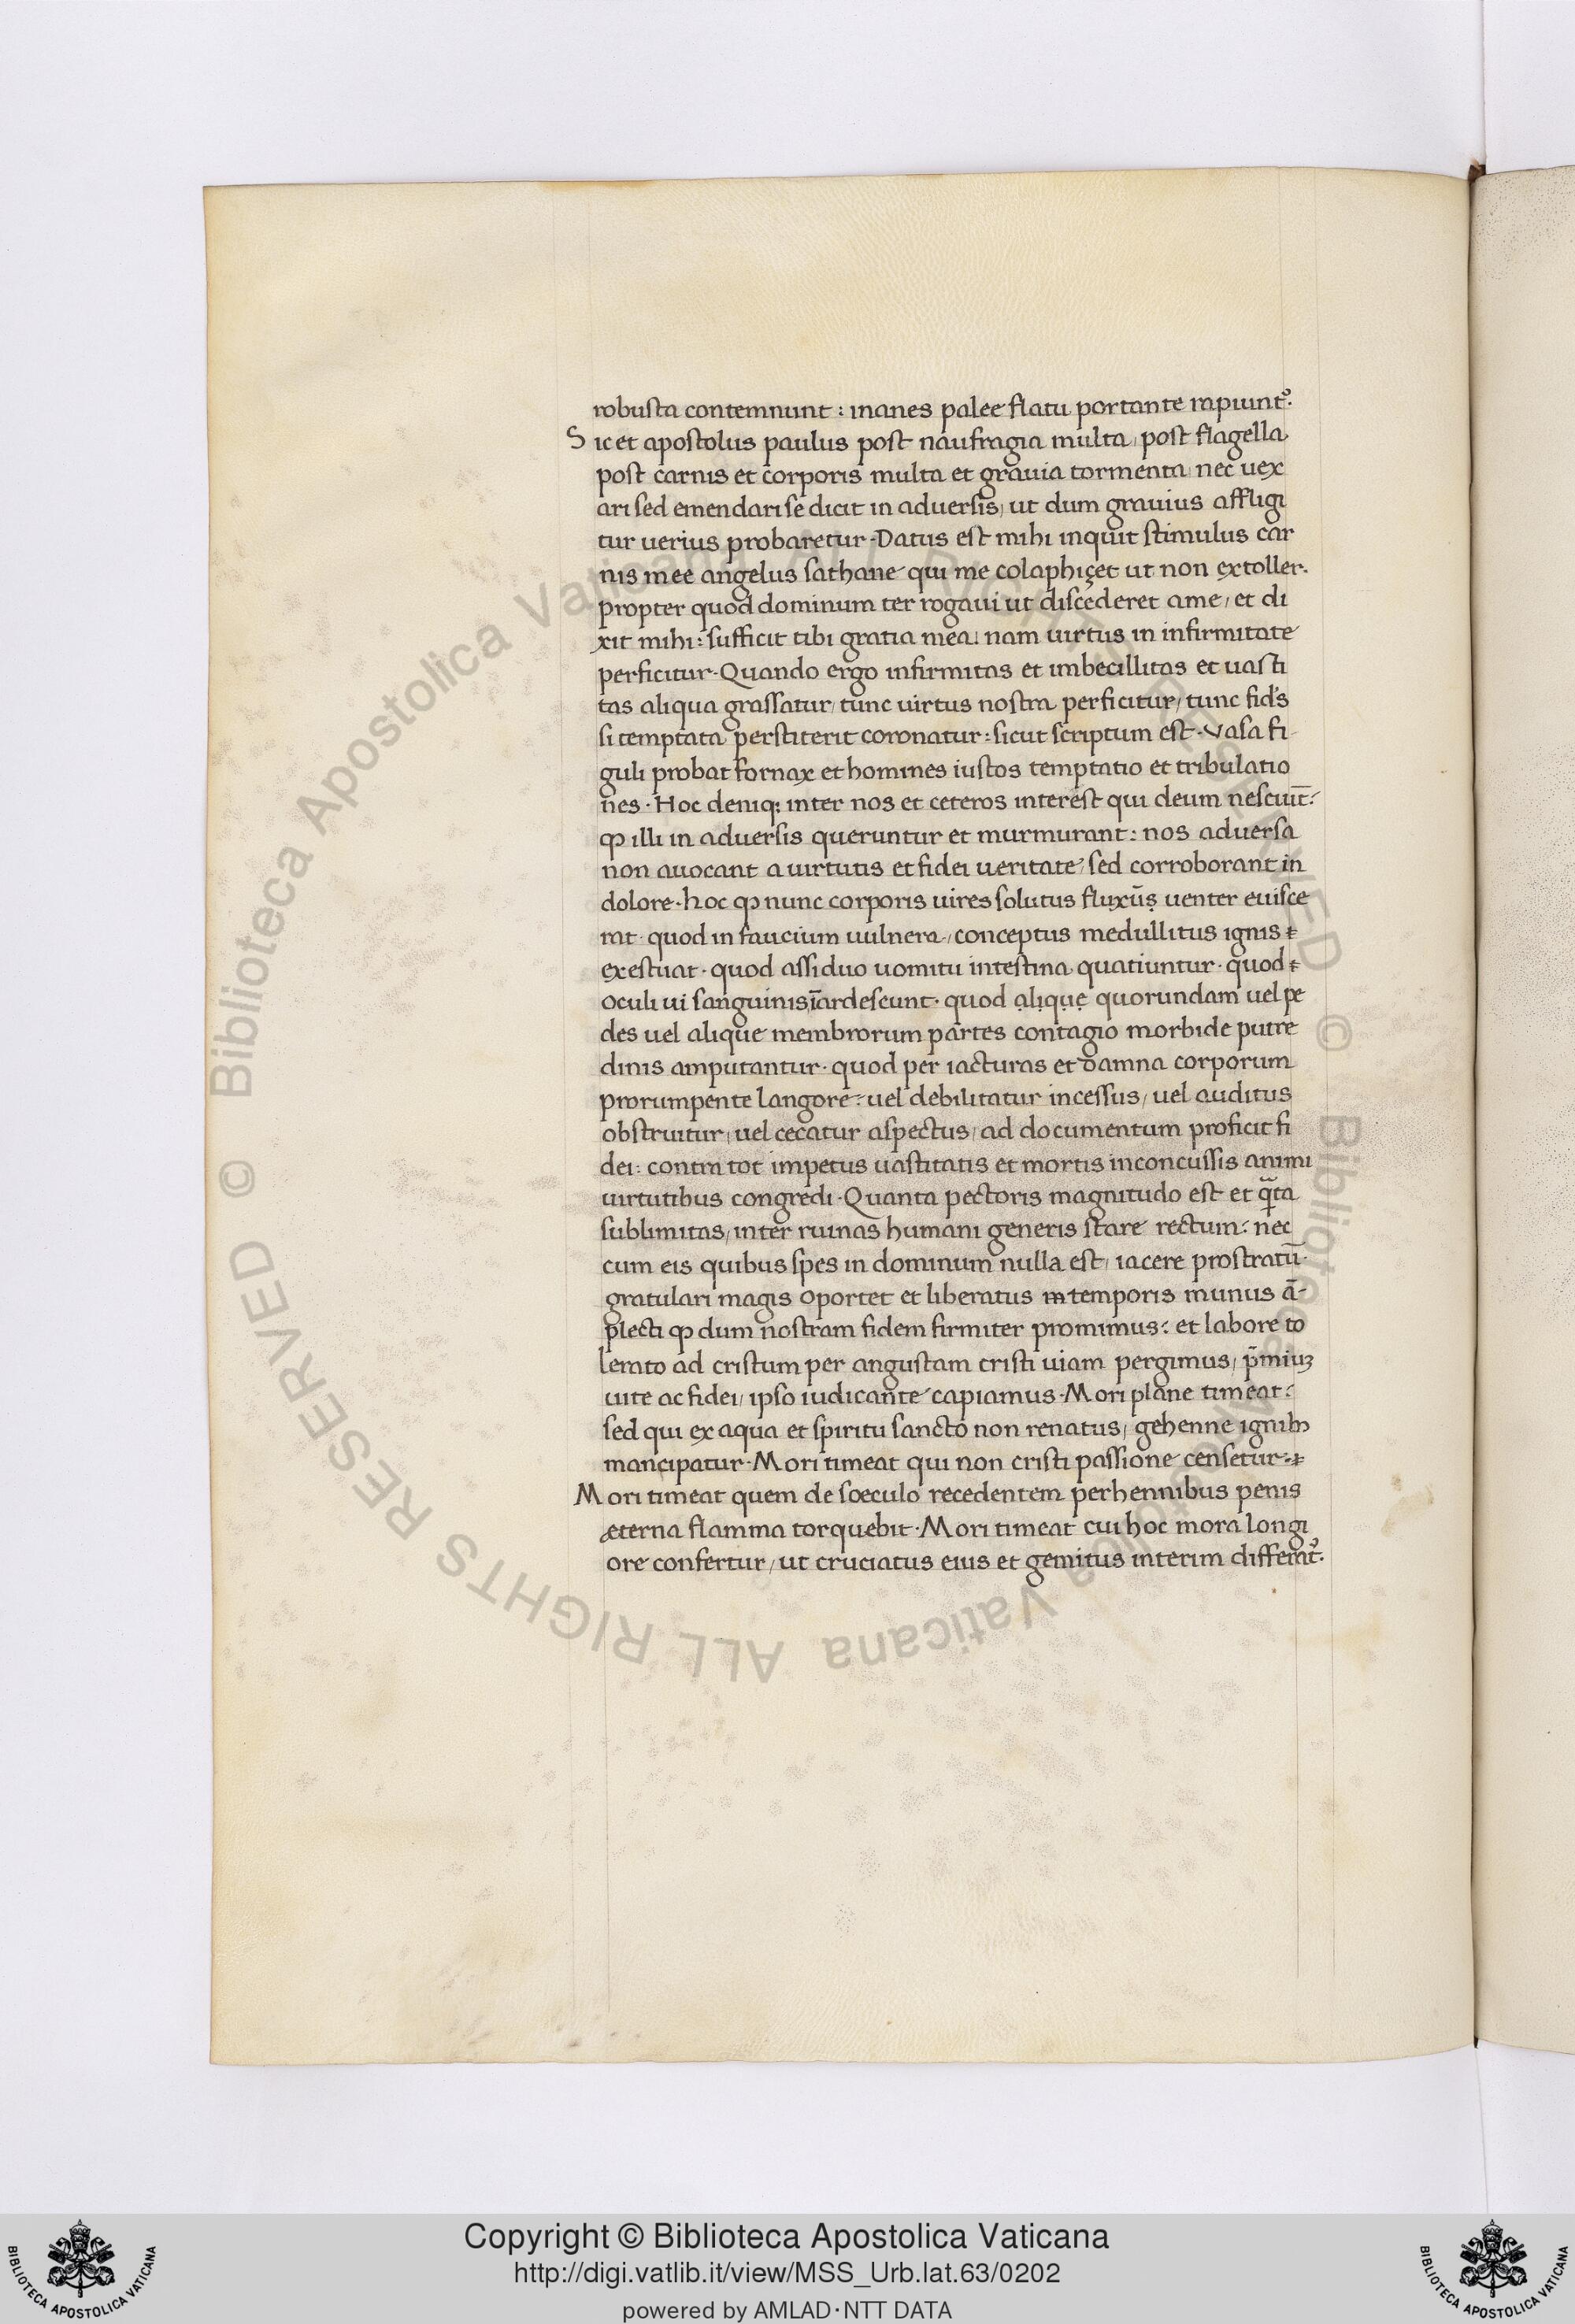 robusta contemnunt : inanes palee flatu portante rapiunt᷒.
Sicet apostolus paulus post naufragia multa, post flagella,
post carnis et corporis multa et grauia tormenta, nec uex
ari sed emendari se dicit in aduersis, ut dum grauius affligi
tur uerius probaretur. Datus est mihi inquit stimulus car
nis mee angelus sathane qui me colaphiçet ut non extoller.
propter quod dominum ter rogaui ut discederet ame, et di
xit mihi: sufficit tibi gratia mea. nam uirtus in infirmitate
perficitur. Quando ergo infirmitas et imbecillitas et uasti
tas aliqua grassatur, tunc uirtus nostra perficitur, tunc fid's
si temptata perstiterit coronatur: sicut scriptum est. Vasa fi
guli probat fornax et homines iustos temptatio et tribulatio
nes. Hoc deniq; inter nos et ceteros interest qui deum nesciūt:
ꝙ illi in aduersis queruntur et murmurant: nos aduersa
non auocant a uirtutis et fidei ueritate, sed corroborant in
dolore. hoc ꝙ nunc corporis uires solutus fluxūṣ uenter euisce
rat. quod in faucium uulnera, conceptus medullitus ignis
exestuat. quod assiduo uomitu intestina quatiuntur. quod
oculi ui sanguinis īardescunt. quod ạḷịqụẹ quorundam uel pe
des uel alique membrorum partes contagio morbide putre
dinis amputantur. quod per iacturas et damna corporum
prorumpente langore: uel debilitatur incessus, uel auditus
obstruitur, uel cecatur aspectus, ad documentum proficit fi
dei: contra tot impetus uastitatis et mortis inconcussis animi
uirtutibus congredi. Quanta pectoris magnitudo est et q̄ta
sublimitas, inter ruinas humani generis stare rectum: nec
cum eis quibus spes in dominum nulla est, iacere prostratū.
gratulari magis oportet et liberatus temporis munus ā-
plecti ꝙ dum nostram fidem firmiter promimus: et labore to
lerato ad cristum per angustam cristi uiam pergimus, p̄miuꝫ
uite ac fidei, ipso iudicante capiamus. Mori plane timeat:
sed qui ex aqua et spiritu sancto non renatus, gehenne ignib᷒
mancipatur. Mori timeat qui non cristi passione censetur:
Mori timeat quem de sœculo recedentem perhennibus penis
æterna flamma torquebit. Mori timeat cui hoc mora longi
ore confertur, ut cruciatus eius et gemitus interim differat᷒.
© Biblioteca Apostolica Vaticana ALL RIGHTS RESERVED
© Biblioteca Apostolica Vaticana ALL RIGHTS RESERVED
BIBLIOTECA APOSTOLICA VATICANA
Copyright © Biblioteca Apostolica Vaticana
http://digi.vatlib.it/view/MSS_Urb.lat.63/0202
powered by AMLAD·NTT DATA
BIBLIOTECA APOSTOLICA VATICANA